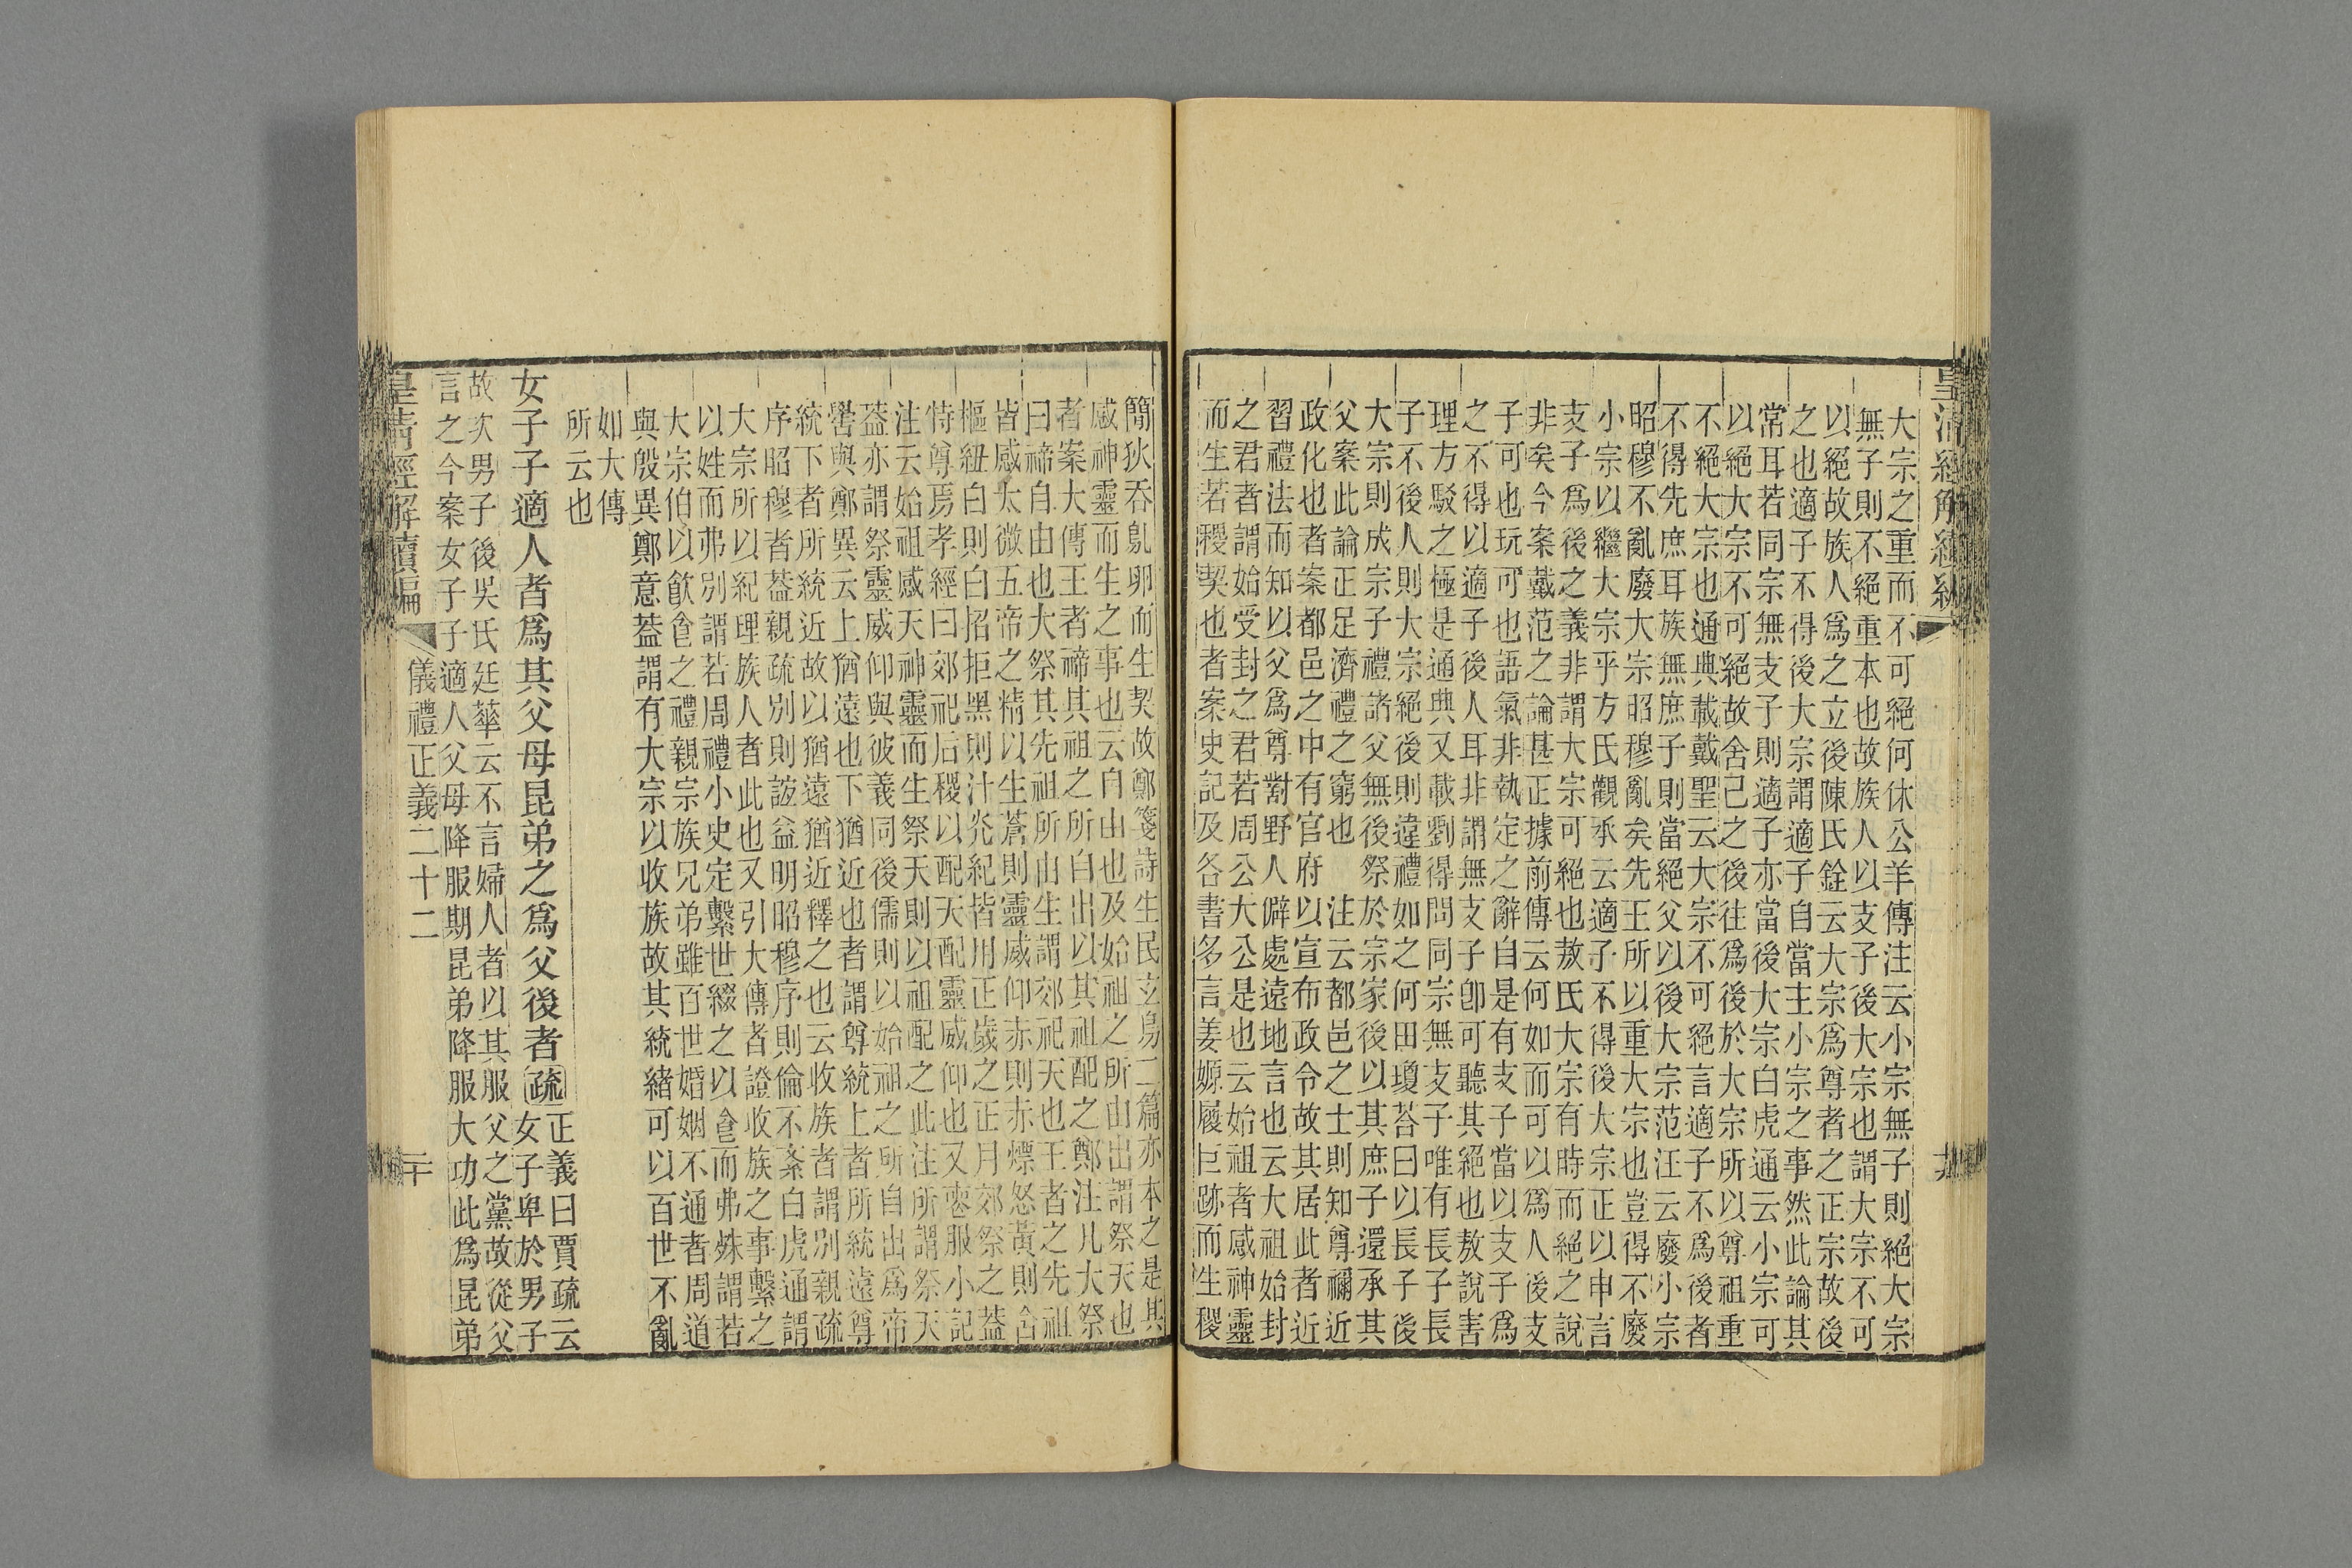 皇清經解續編
大宗之重而不可絕何休公羊傳注云小宗無子則絕大宗
無子則不絕重本也故族人以支子後大宗也謂大宗不可
以絕故族人爲之立後陳氏銓云大宗爲尊者之正宗故後
之也適子不得後大宗謂適子自當主小宗之事然此論其
常耳若同宗無支子則適子亦當後大宗白虎通云小宗可
以絕大宗不可絕故舍己之後往爲後於大宗所以尊祖重
不絕大宗也通典載戴聖云大宗不可絕言適子不爲後者
不得先庶耳族無庶子則當絕父以後大宗范汪云廢小宗
昭穆不亂廢大宗昭穆亂矣先王所以重大宗也豈得不廢
小宗以繼大宗乎方氏觀承云適子不得後大宗正以申言
支子爲後之義非謂大宗可絕也敖氏大宗有時而絕之說
非矣今案戴范之論甚正據前傳云何如而可以爲人後支
子可也玩可也語氣非執定之辭自是有支子當以支子爲
之不得以適子後人耳非謂無支子卽可聽其絕也敖說害
理方駁之極是通典又載劉得問同宗無支子唯有長子長
子不後人則大宗絕後則違禮如之何田瓊荅曰以長子後
大宗則成宗子禮諸父無後祭於宗家後以其庶子還承其
父案此論正足濟禮之窮也　注云都邑之士則知尊禰近
政化也者案都邑之中有官府以宣布政令故其居此者近
習禮法而知以父爲尊對野人僻處遠地言也云大祖始封
之君者謂始受封之君若周公大公是也云始祖者感神靈
而生若稷契也者案史記及各書多言姜嫄履巨跡而生稷
簡狄吞鳦卵而生契故鄭箋詩生民玄鳥二篇亦本之是其
感神靈而生之事也云自由也及始祖之所由出謂祭天也
者案大傳王者禘其祖之所自出以其祖配之鄭注凡大祭
曰禘自由也大祭其先祖所由生謂郊祀天也王者之先祖
皆感太微五帝之精以生蒼則靈威仰赤則赤熛怒黃則含
樞紐白則白招拒黑則汁光紀皆用正歲之正月郊祭之蓋
特尊焉孝經曰郊祀后稷以配天配靈威仰也又喪服小記
注云始祖感天神靈而生祭天則以祖配之此注所謂祭天
蓋亦謂祭靈威仰與彼義同後儒則以始祖之所自出爲帝
嚳與鄭異云上猶遠也下猶近也者謂尊統上者所統遠尊
統下者所統近故以猶遠猶近釋之也云收族者謂別親疏
序昭穆者蓋親疏別則誼益明昭穆序則倫不紊白虎通謂
大宗所以紀理族人者此也又引大傳者證收族之事繫之
以姓而弗別謂若周禮小史定繫世綴之以食而弗殊謂若
大宗伯以飮食之禮親宗族兄弟雖百世婚姻不通者周道
與殷異鄭意蓋謂有大宗以收族故其統緒可以百世不亂
如大傳
所云也
女子子適人者爲其父母昆弟之爲父後者疏正義曰賈疏云
女子卑於男子
故次男子後吳氏廷華云不言婦人者以其服父之黨故從父
言之今案女子子適人父母降服期昆弟降服大功此爲昆弟
皇清經解續編　儀禮正義二十二　二十